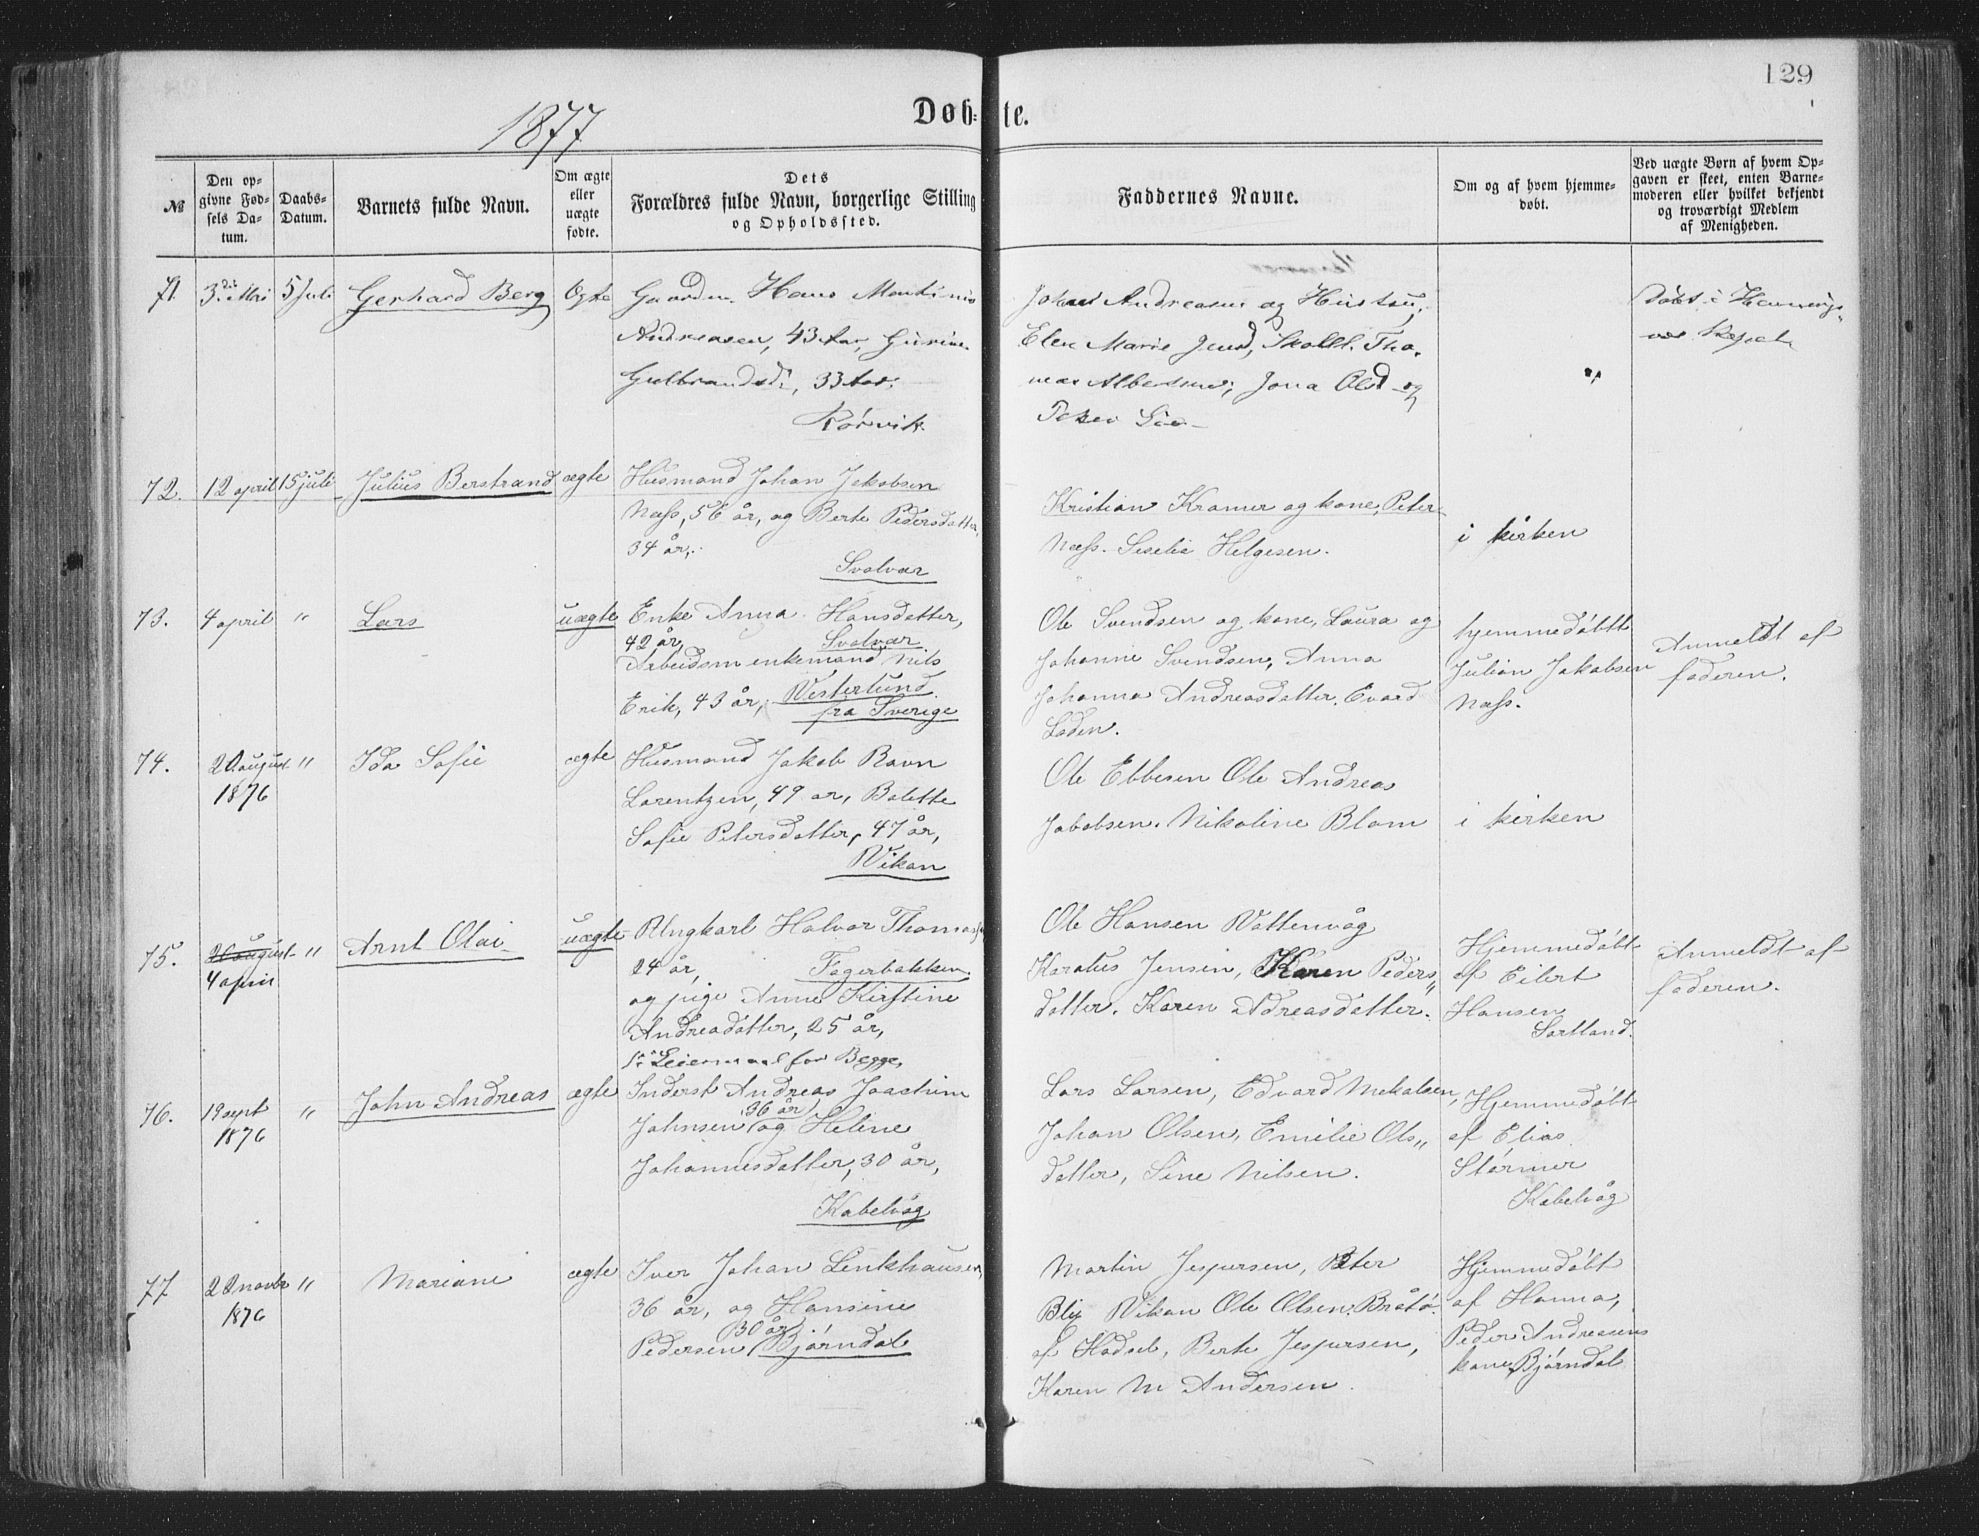 129
1877
Døb-te.
№
Den opgivne Fødsels Datum.
Daabs-Datum.
Barnets fulde Navn.
Om ægte eller uægte fødte.
Dets Forældres fulde Navn, borgerlige Stilling og Opholdssted.
Faddernes Navne.
Om og af hvem hjemmedøbt.
Ved uægte Børn af hvem Opgaven er skeet, enten Barnemoderen eller hvilket bekjendt og troværdigt Medlem af Menigheden.
71. 3die Mai 5 Juli Gerhard Berg Ægte
Gaardm. Hans Martinus
Andreasen, 43 Aar, Gurine
Gulbrandsd:, 33 Aar.
Rørvik
Johan Andreasen og Hustru,
Elen Marie Jensd, Tho-
mas Albertsen, Jona Olsd og
Peter
Døbt i Hennings-
vær Kapel
72. 12 april 15 juli Julius Berstrand ægte
Husmand Johan Jakobsen
Næss, 56 år, og Berte Pedersdatter,
34 år,
Svolvær
Kristian Kramer og kone, Peter
Næss. Seselie Helgesen.
i kirken
73. 4 april " Lars uægte
Enke Anna Hansdatter,
42 år, Svolvær
Arbeidsm enkemand Nils
Erik, 43 år, Westerlund
fra Sverige
Ole Svendsen og kone, Laura og
Johanne Svendsen, Anna
Johanna Andreasdatter. Evard
Loden.
hjemmedøbtt
Julian Jakobsen
Næss.
Anmeldt af
faderen.
74. 20 august 1876 " Ida Sofie ægte
Husmand Jakob Ravn
Lorentzen, 49 ar, Bolette
Sofie Petersdatter, 47 år,
Wikan
Ole Ebbesen Ole Andreas
Jabobsen. Nikoline Blom
i kirken
75. 20 august 4 april " Arnt Olai uægte
Ungkarl Halvor Thomas
24 år, Fagerbakken
og pige Anne Kirstine
Andreadatter, 25 år,
1ste Leiermaal for Begge,
Ole Hansen Wattenvåg
Karatus Jensen, Karen Peders"
datter. Karen Adreasdatter.
Hjemmedøbt
af Eilert
Hansen
Sortland.
Anmeldt af
faderen.
76. 19 sept 1876 " John Andreas ægte
Inderst Andreas Joachim
Johnsen 36 år og Heline
Johannesdatter, 30 år,
Kabelvåg
Lars Larsen, Edvard Mekalsen,
Johan Olsen, Emilie Ols"
datter, Sine Nilsen.
Hjemmedøbt
af Elias
Størmer
Kabelvåg
77 22 novbr 1876 " Mariane ægte
Iver Johan Lenkhausen,
36 år, og Hansine
Pedersen 30 år, Bjørndal
Martin Jespersen, Peter
Blix Wikan Ole Olsen. Bråtø.
af Hadsel, Berte Jespersen,
Karen M Andersen.
Hjemmedøbt
af Hanna,
Peder Andreasens
kone, Bjørndal